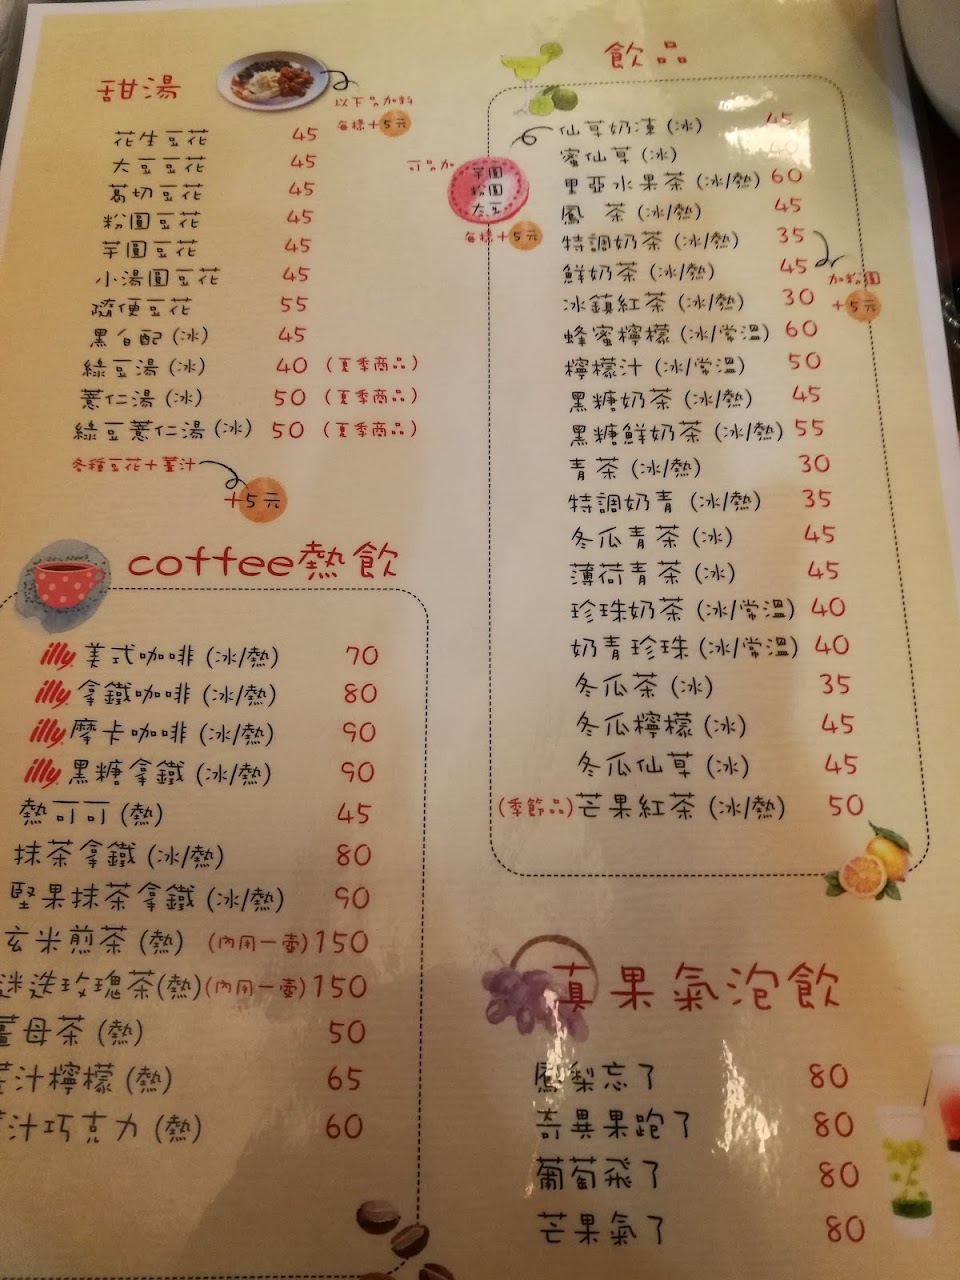 甜湯
以下品加料
每樣+5元
花生豆花 45
大豆豆花 45
葛切豆花 45
粉圓豆花 45
芋圓豆花 45
小湯圓豆花 45
隨便豆花 55
黑白配(冰) 45
綠豆湯(冰) 40 (夏季商品)
薏仁湯(冰) 50 (夏季商品)
綠豆薏仁湯(冰) 50 (夏季商品)
冬種豆花+薑汁
+5元
coffee熱飲
illy 美式咖啡(冰/熱) 70
illy 拿鐵咖啡(冰/熱) 80
illy 摩卡咖啡(冰/熱) 90
illy 黑糖拿鐵(冰/熱) 90
熱可可(熱) 45
抹茶拿鐵(冰/熱) 80
堅果抹茶拿鐵(冰/熱) 90
玄米煎茶(熱) (內用一壺)150
迷迭玫瑰茶(熱)(內用一壺)150
薑母茶(熱) 50
汁檸檬(熱) 65
汁巧克力(熱) 60
飲品
可品加
芋圓
粉圓
大豆
每樣+5元
仙草奶凍(冰) 45
蜜仙草(冰)
里亞水果茶(冰/熱) 60
鳳 茶(冰/熱) 45
特調奶茶(冰/熱) 35
鮮奶茶(冰/熱) 45
加粉圓
+5元
冰鎮紅茶(冰/熱) 30
蜂蜜檸檬(冰/常溫) 60
檸檬汁(冰/常溫) 50
黑糖奶茶(冰/熱) 45
黑糖鮮奶茶(冰/熱) 55
青茶(冰/熱) 30
特調奶青(冰/熱) 35
冬瓜青茶(冰) 45
薄荷青茶(冰) 45
珍珠奶茶(冰/常溫) 40
奶青珍珠(冰/常溫) 40
冬瓜茶(冰) 35
冬瓜檸檬(冰) 45
冬瓜仙草(冰) 45
(季節品)芒果紅茶(冰/熱) 50
真果氣泡飲
鳳梨忘了 80
奇異果跑了 80
葡萄飛了 80
芒果氣了 80